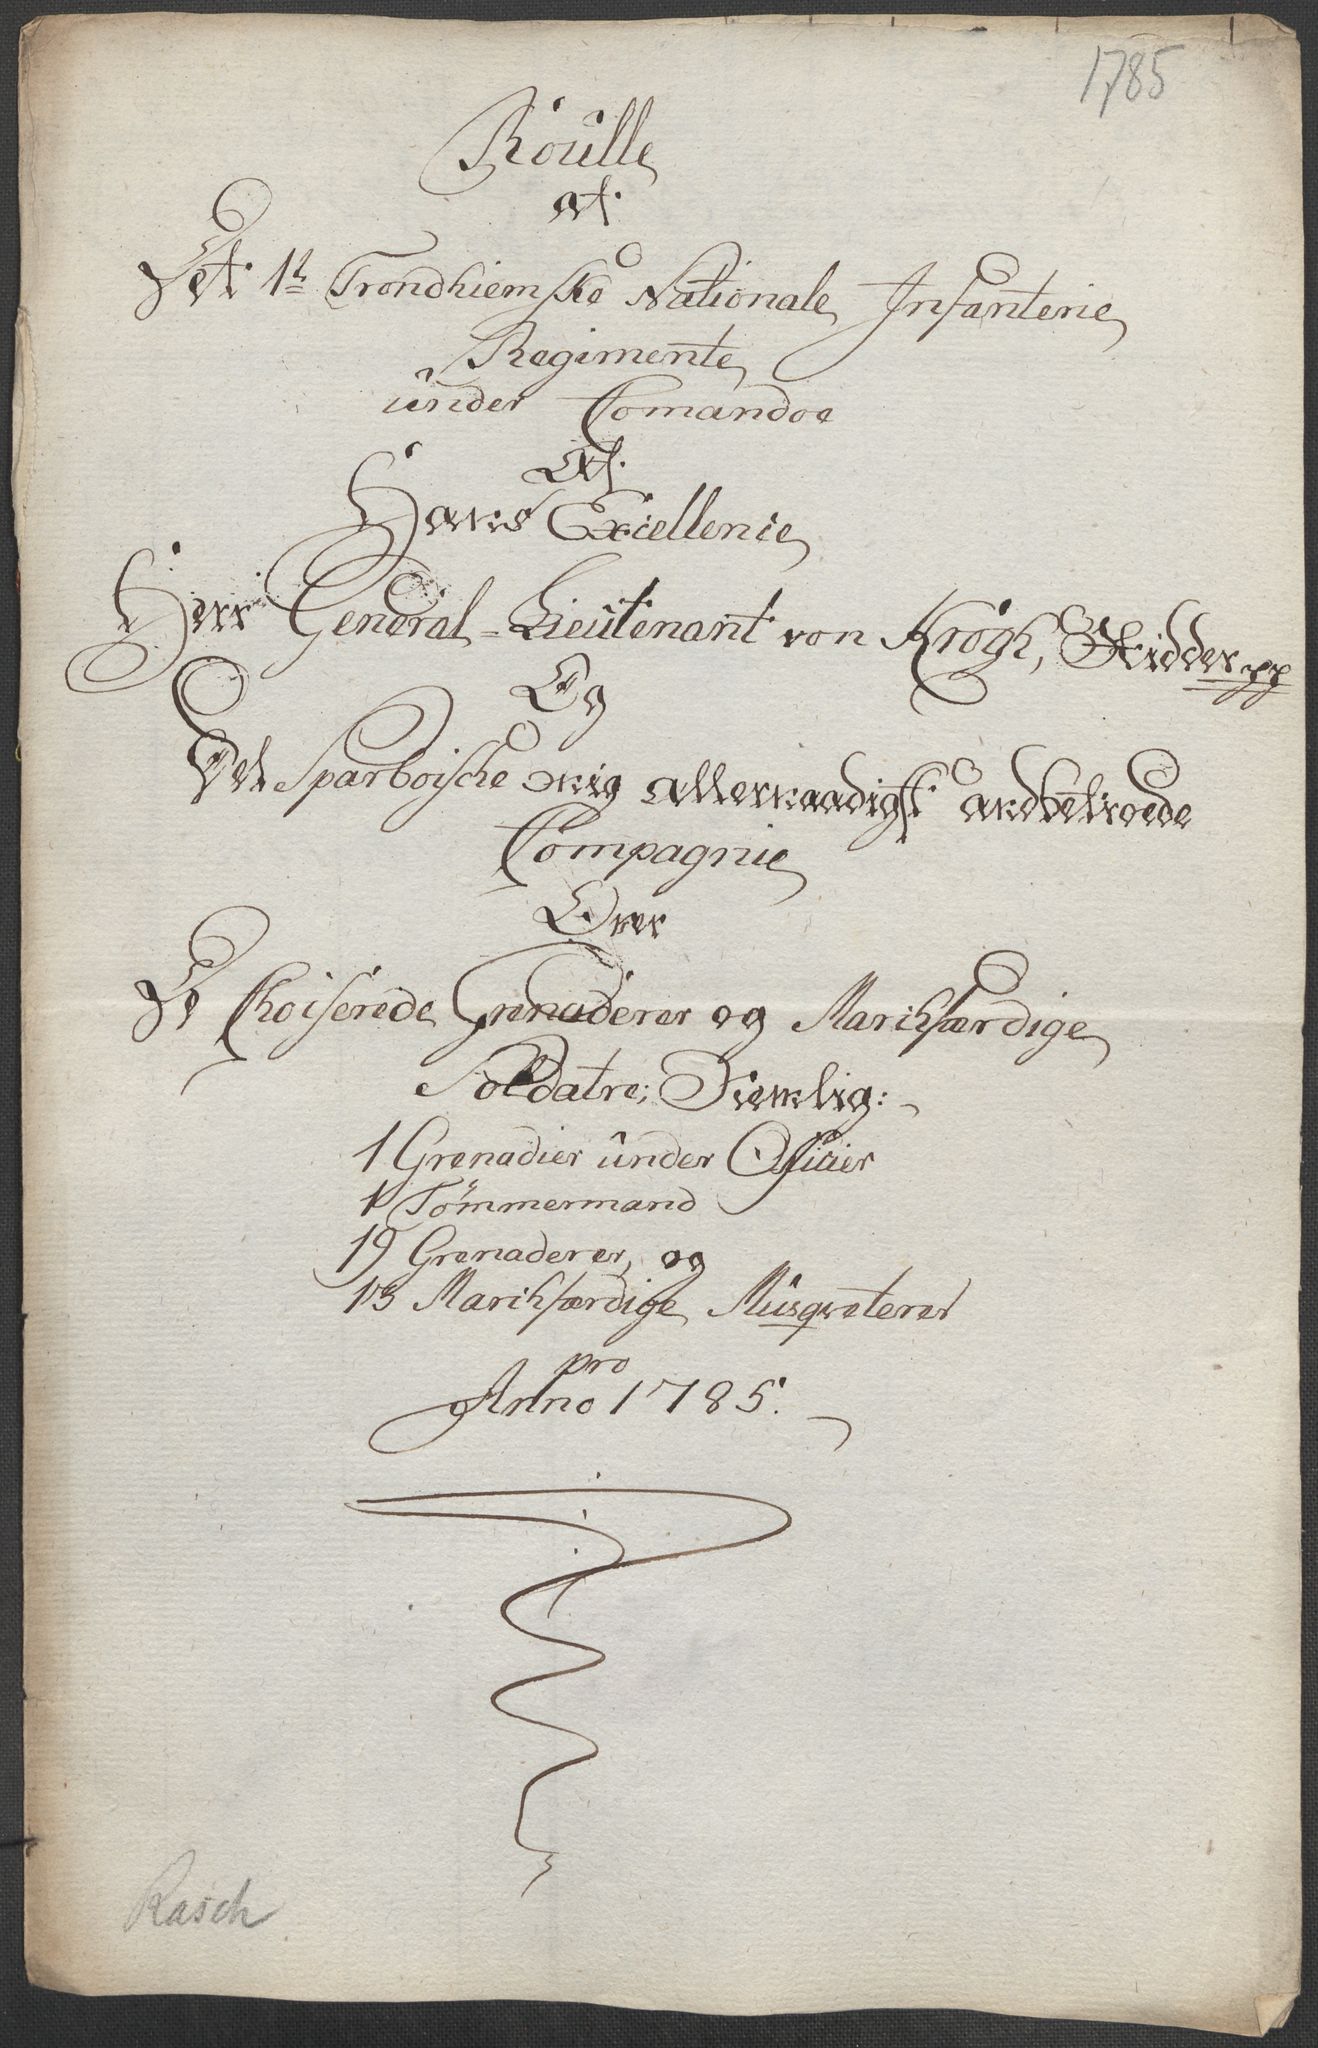 1785
Roulle
af
Det 1te Trondhiemske Nationale Infanterie
Regimente
under Comandoe
Af
Hans Excellence
Herr General-Lieutenant von Krogh, Ridder pp
Og
Det Sparboische mig allernaadigst andbetroede
Compagnie
Over
De Choiserede Grenaderer og Marchfærdige
Soldatre; Nemlig:
1 Grenadier under Officier
1 Tömmermand
19 Grenaderer, og
Marchfærdige Musqveterer
pro
Anno 1785.
Rasch